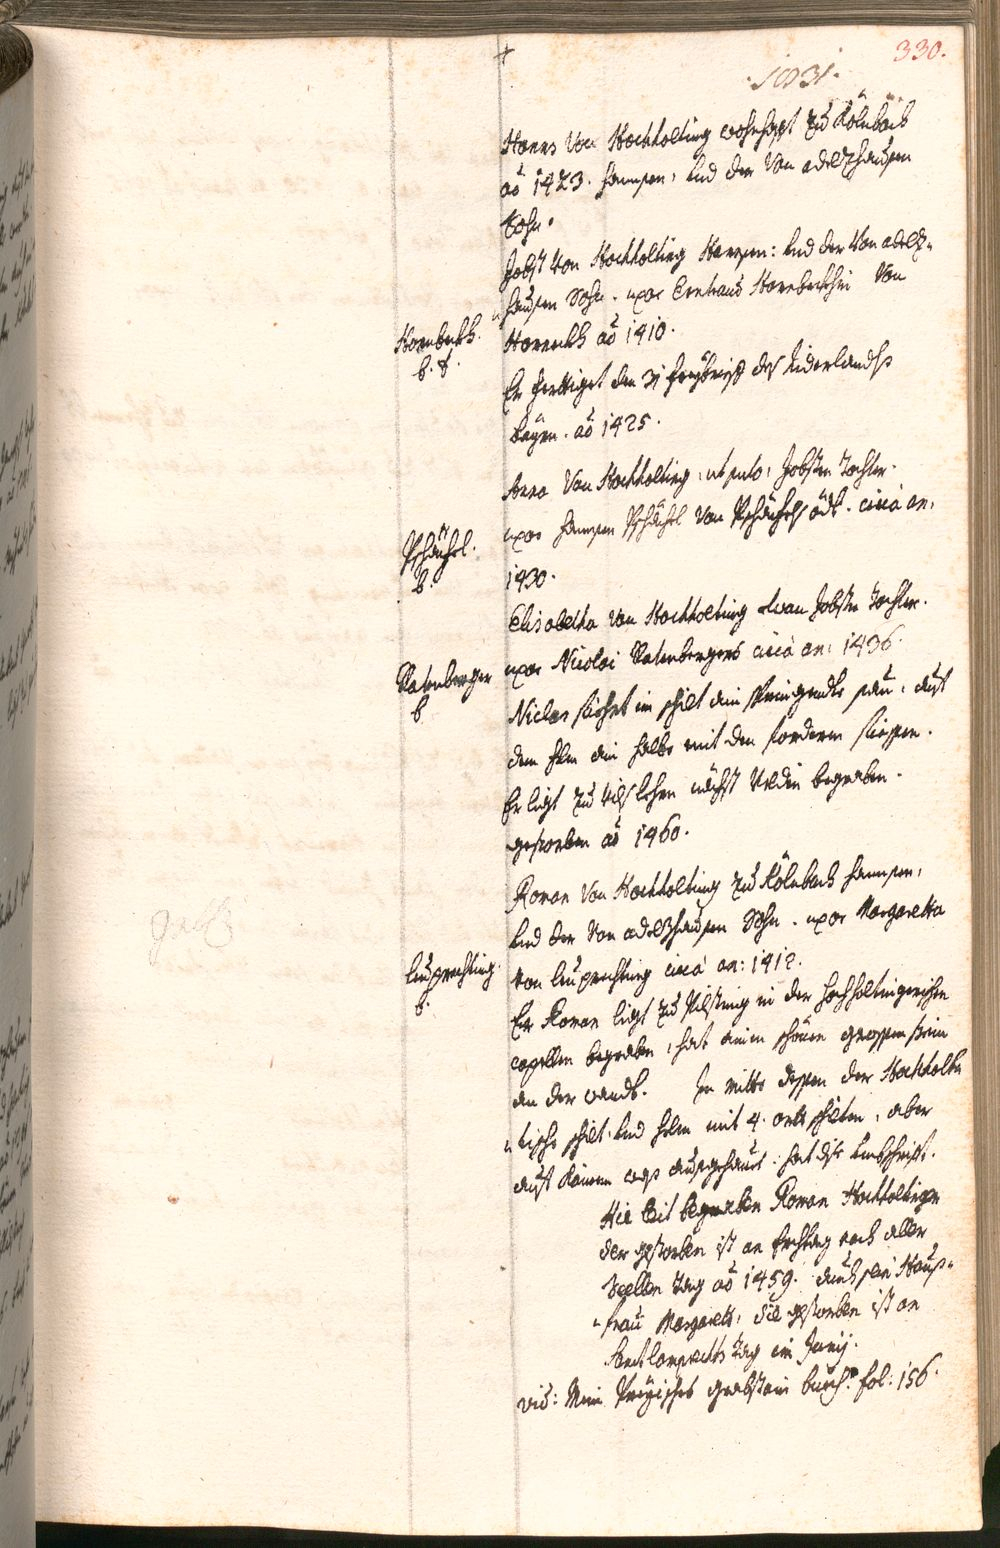 330.
1031.
Hanns Von Hochholting wohnhafft zu Kölnbach
aõ 1423. Hannsen, und der Von adeltzhausen
Sohn.
Jobst Von Hochholting Hannsen: und der Von adeltz-
hausen Sohn. uxor Gertraud Hornbeckhin Von
Horneckh aõ 1410.
Hornbeckh.
b. f.
Er ferttiget den 31 freÿbrieff des Niderlandts
baÿrn. aõ 1425.
Anna Von Hochholting, ut puto, Jobsten Tochter.
uxor Hannsen Pschächl Von Pschächlsödt. circà an.
1430.
Pschächl.
b.
Elisabetha Von Hochholting etwan Jobsten Tochter.
uxor Nicolai Ratenbergers circà an: 1436.
Ratenberger
b
Niclas fiehrt im schilt ein springendte sau, auf
dem helm ein halbe mit den fordern fiessen.
Er ligt zu Vilslehrn nächst Velden begraben.
gestorben aõ 1460.
Roman Von Hochholting zu Kölnbach Hannsen,
und der Von adeltzhausen Sohn. uxor Margaretta
Von leuprechting circà an: 1412.
leuprechting.
b.
Er Roman ligt zu Pilsting in der Hochholtingerischen
capellen begraben, hat einen schönen grossen stein
an der wandt. In mitte dessen der Hochholtin-
gische schilt und helm mit 4. orth schilten, aber
auf keinem was ausgehaut: hat dise umbschrifft.
Hie leit begraben Roman Hochholtinger
der gestorben ist an Erchtag nach aller
Seellen Tag aõ 1459. auch sein Hauß-
frau Margareth, die gestorben ist an
Sant lamprechts Tag im Junij.
vid: Mein Preÿisches grabstain buech. fol: 156.